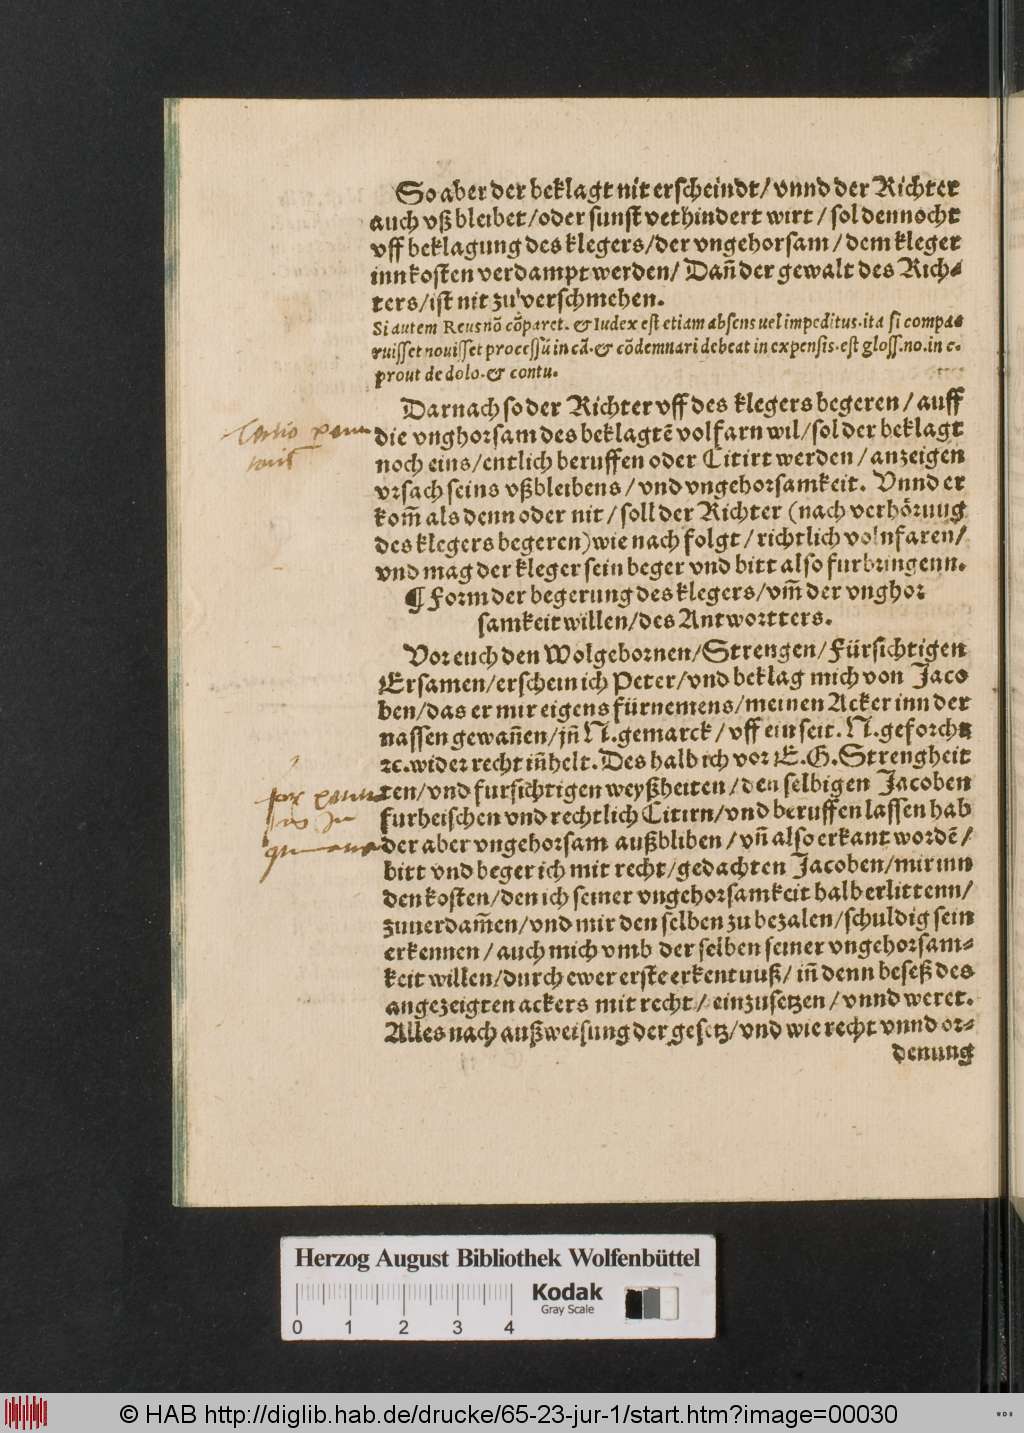 So aber der beklagt nit erscheindt/ vnnd der Richter
auch vß bleibet/ oder sunst verhindert wirt/ sol dennocht
vff beklagung des klegers/ der vngehorsam/ dem kleger
inn kosten verdampt werden/ Dañ der gewalt des Rich-
ters/ ist nit zu verschmehen.
Si autem Reus nõ cõparet. & Iudex est etiam absens uel impeditus. ita si compa-
ruisset nouisset processũ in cã. & cõdemnari debeat in expensis. est gloss. no. in c.
prout de dolo. & contu.
Darnach so der Richter vff des klegers begeren/ auff
die vnghorsam des beklagtẽ volfarn wil/ sol der beklagt
noch eins/ entlich beruffen oder Citirt werden/ anzeigen
vrsach seins vßbleibens/ vnd vngehorsamkeit. Vnnd er
kom̃ als denn oder nit/ soll der Richter (nach verhörung
des klegers begeren) wie nach folgt/ richtlich volnfaren/
vnd mag der kleger sein beger vnd bitt also furbringenn.
¶ Form der begerung des klegers/ vm̃ der vnghor
samkeit willen/ des Antwortters.
Vor euch den Wolgebornen/ Strengen/ Fürsichtigen
Ersamen/ erschein ich Peter/ vnd beklag mich von Jaco
ben/ das er mir eigens fürnemens/ meinen Acker inn der
nassen gewañen/ jñ N. gemarck/ vff ein seit. N. geforcht
ꝛc. wider recht iñhelt. Des halb ich vor E. G. Strengheit
ten/ vnd fursichtigen weyßheiten/ den selbigen Jacoben
furheischen vnd rechtlich Citirn/ vnd beruffen lassen hab
der aber vngehorsam außbliben/ vñ also erkant wordẽ/
bitt vnd beger ich mit recht/ gedachten Jacoben/ mir inn
den kosten/ den ich seiner vngehorsamkeit halb erlittenn/
zuuerdam̃en/ vnd mir den selben zu bezalen/ schuldig sein
erkennen/ auch mich vmb der selben seiner vngehorsam-
keit willen/ durch ewer erste erkentnuß/ iñ denn beseß des
angezeigten ackers mit recht/ einzusetzen/ vnnd weret.
Alles nach außweisung der gesetz/ vnd wie recht vnnd or-
denung
Herzog August Bibliothek Wolfenbüttel
Kodak
Gray Scale
0 1 2 3 4
© HAB http://diglib.hab.de/drucke/65-23-jur-1/start.htm?image=00030